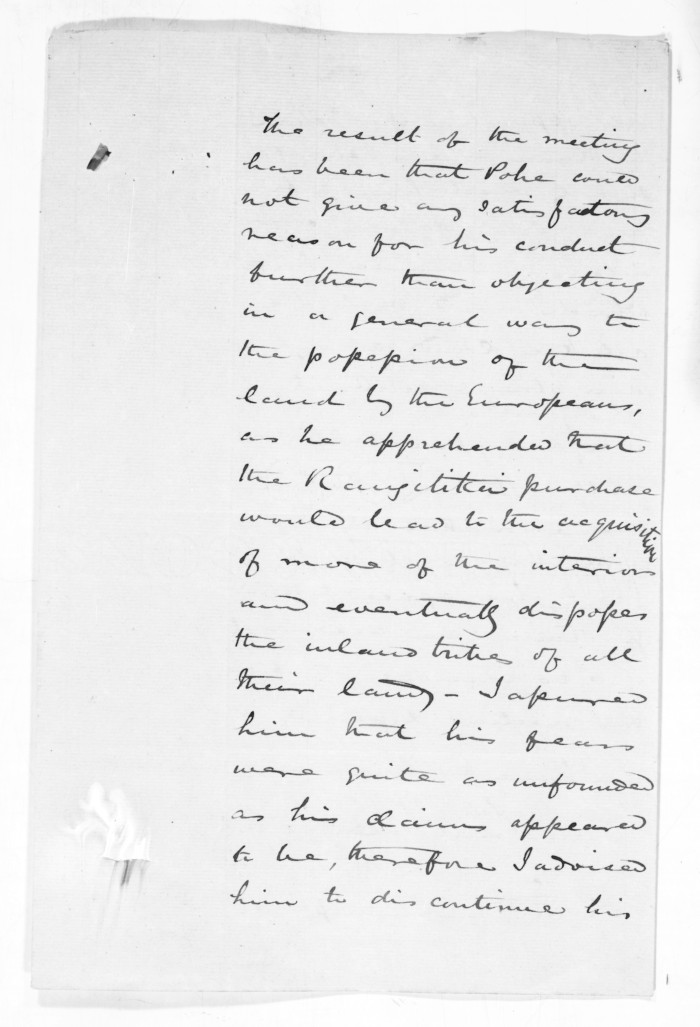 The result of the meeting
has been that Pohe could
not give any satisfactory
reason for his conduct
further than objecting
in a general way to
the possession of the
land by the Europeans,
as he apprehended that
the Rangitikei purchase
would lead to the acquisition
of more of the interior
and eventually dispossess
the inland tribes of all
their land, - I assured
him that his fears
were quite as unfounded
as his claims appeared
to be, therefore I advised
him to discontinue his